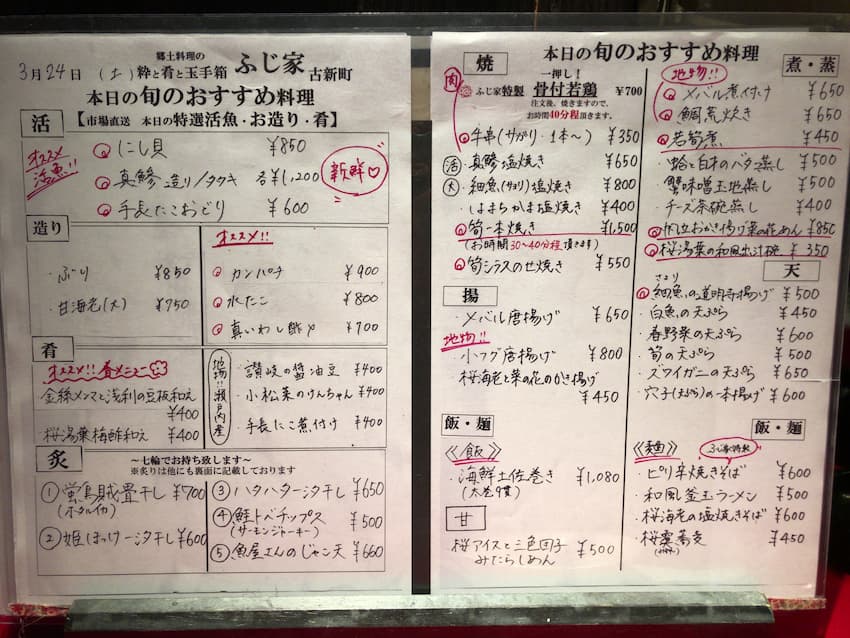 3月24日 (土)
郷土料理の
粋と肴と玉手箱 ふじ家 古新町
本日の旬のおすすめ料理
活 【市場直送 本日の特選活魚・お造り・肴】
オススメ活魚!!
にし貝 ¥850
真鯵 造り/タタキ 各¥1,200
手長たこおどり ¥600
新鮮♡
造り
・ぶり ¥850
・甘海老(大) ¥750
オススメ!!
カンパチ ¥900
水たこ ¥800
真いわし酢〆 ¥700
肴
オススメ!!春メニュー
金絲メンマと浅利の豆板和え ¥400
桜湯葉梅酢和え ¥400
地場!!瀬戸内産
・讃岐の醤油豆 ¥400
・小松菜のけんちゃん ¥400
・手長たこ煮付け ¥400
炙
~七輪でお持ち致します~
※炙りは他にも裏面に記載しております
① 蛍烏賊畳干し ¥700
(ホタルイカ)
② 姫ほっけ一汐干し ¥600
③ ハタハタ一汐干し ¥650
④ 鮭トバチップス ¥500
(サーモンジャーキー)
⑤ 魚屋さんのじゃこ天 ¥660
本日の旬のおすすめ料理
焼
肉
一押し!
ふじ家特製 骨付若鶏 ¥700
注文後、焼きますので、
お時間40分程頂きます。
牛串(サガリ・1本~) ¥350
活 真鯵塩焼き ¥650
大 細魚(サヨリ)塩焼き ¥800
・はまちかま塩焼き ¥400
筍一本焼き ¥1,500
(お時間30~40分程頂きます)
筍シラスのせ焼き ¥550
揚
・メバル唐揚げ ¥650
地物!!
・小フグ唐揚げ ¥800
桜海老と菜の花のかき揚げ
¥450
飯・麺
《飯》
・海鮮土佐巻き ¥1,080
(太巻9貫)
甘
桜アイスと三色団子
みたらしあん ¥500
煮・蒸
地物!!
メバル煮付け ¥650
鯛荒炊き ¥650
若筍煮 ¥450
・蛤と白木のバタ蒸し ¥500
蟹味噌玉地蒸し ¥500
・チーズ茶碗蒸し ¥400
帆立おかき揚げ菜の花あん ¥850
桜湯葉の和風出汁椀 ¥350
天
さより
細魚の道明寺揚げ ¥500
・白魚の天ぷら ¥450
・春野菜の天ぷら ¥600
・筍の天ぷら ¥500
・ズワイガニの天ぷら ¥650
・穴子(天ぷら)の一本揚げ ¥600
飯・麺
《麺》
ふじ家特製
・ピリ辛焼きそば ¥600
・和風釜玉ラーメン ¥500
・桜海老の塩焼きそば ¥600
・桜蕎麦 ¥450